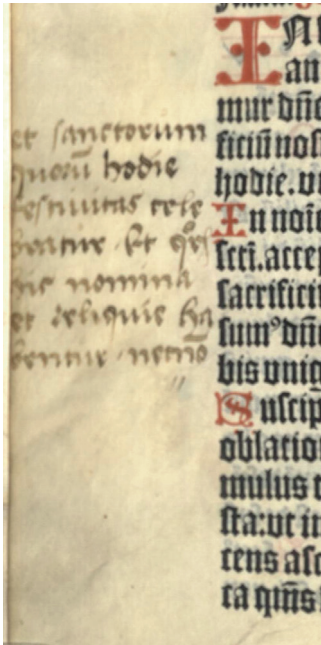 et sanctorum
quorū hodie
festiuitas cele
bratur Et qͦꝝ
hic nomina
et reliquie ha
bentur necnō
mur dñe
ficiū nos
hodie. vt
In noīe
sctī. accep
sacrificiū
sumꝰ dñe
bis vnig
Suscip
oblatio
mulus t
sta: vt in
cens asc
ca qm̄s